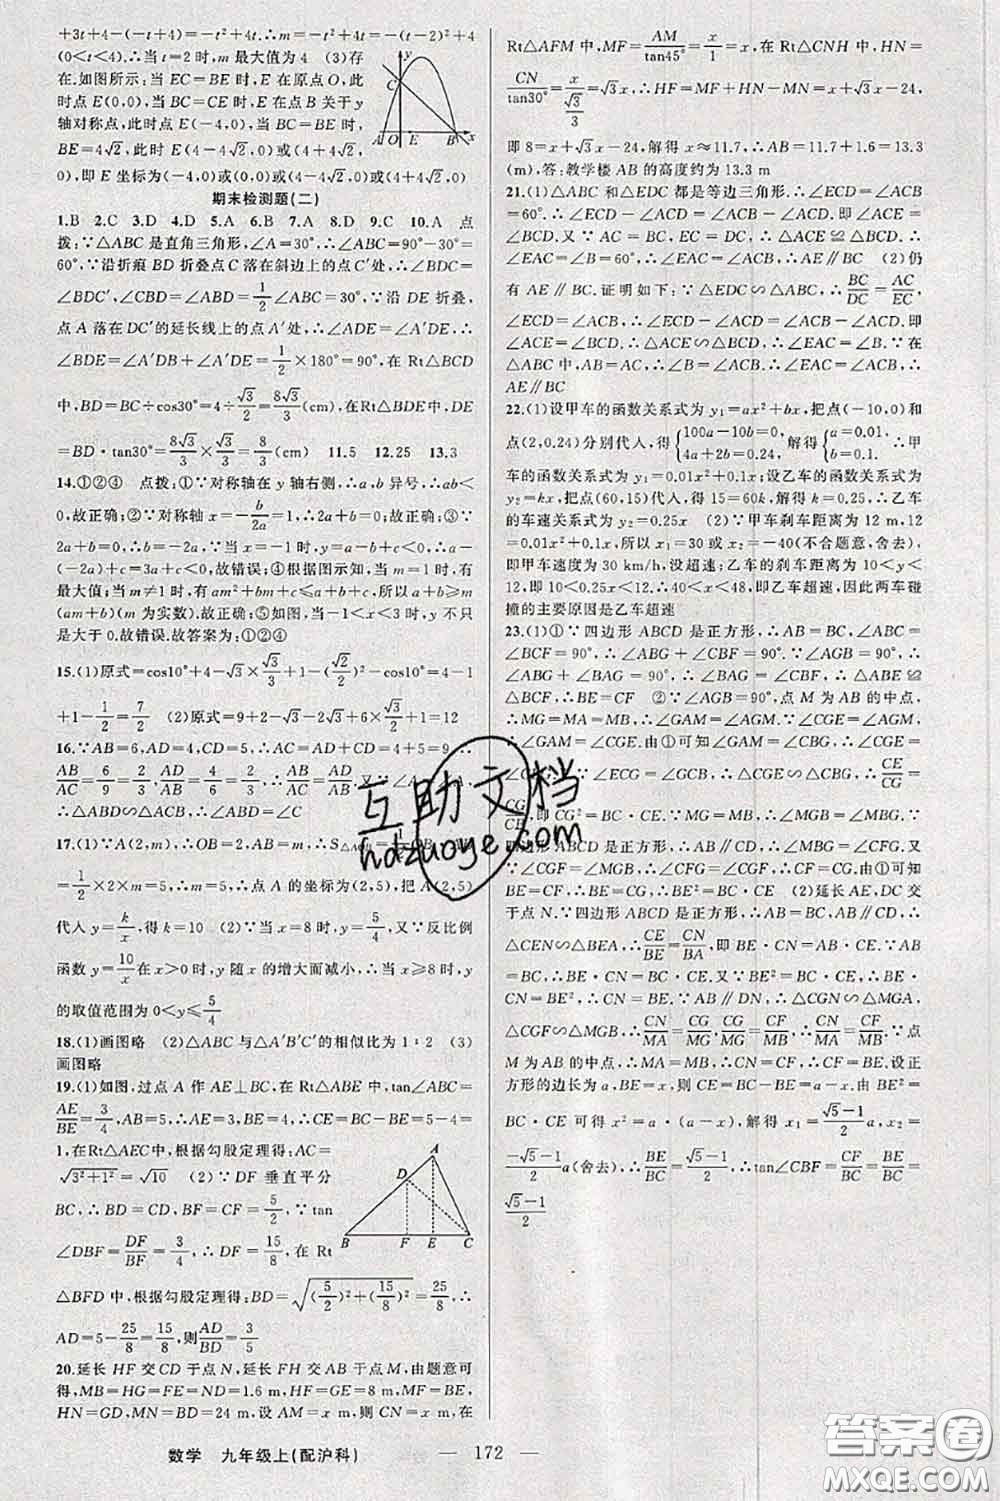 +3t+4-(-t+4)=-t²+4t.∴m=-t²+4t=-(t-2)²+4
(0<t<4).∴当 t=2 时,m 最大值为 4　(3)存
在,如图所示:当 EC=BE 时,E 在原点 O,此
时点 E(0,0),当 BC=CE 时,E 点 B 关于 y
轴对称点,此时点 E(-4,0),当 BC=BE 时,
BE=4√2,此时 E(4-4√2,0)或(4+4√2,
0),即 E 坐标为(-4,0)或(0,0)或(4-4√2,0)或(4+4√2,0)
y
C
A O E B x
期末检测题(二)
1.B 2.C 3.D 4.D 5.A 6.B 7.A 8.D 9.C 10.A 点
拨:∵△ABC 是直角三角形,∠A=30°,∴∠ABC=90°-30°=
60°,∵沿折痕 BD 折叠点 C 落在斜边上的点 C′处,∴∠BDC=
∠BDC′,∠CBD=∠ABD=1/2∠ABC=30°,∵沿 DE 折叠,
点 A 落在 DC′的延长线上的点 A′处,∴∠ADE=∠A′DE,∴
∠BDE=∠A′DB+∠A′DE=1/2×180°=90°,在 Rt△BCD
中,BD=BC÷cos30°=4÷√3/2=8√3/3(cm),在Rt△BDE中,DE
=BD·tan30°=8√3/3×√3/3=8/3(cm)　11.5　12.25　13.3
14.①②④　点拨:①∵对称轴在 y 轴右侧,∴a,b 异号,∴ab<
0,故正确;②∵对称轴 x=-b/2a=1,∴2a+b=0;故正确;③∵
2a+b=0,∴b=-2a,∵当 x=-1 时,y=a-b+c<0,∴a-
(-2a)+c=3a+c<0,故错误;④根据图示知,当 m=1 时,有
最大值;当 m≠1 时,有 am²+bm+c≤a+b+c,所以 a+b≥m
(am+b)(m 为实数).故正确;⑤如图,当-1<x<3 时,y 不只
是大于 0.故错误.故答案为:①②④
15.(1)原式=cos10°+4-√3×√3/3+1-(√2/2)²-cos10°=4-1
+1-1/2=7/2　(2)原式=9+2-√3-2√3+6×√3/2+1=12
16.∵AB=6,AD=4,CD=5,∴AC=AD+CD=4+5=9,∴
AB/AC=6/9=2/3,AD/AB=4/6=2/3,∴AB/AC=AD/AB,又∵∠A=∠A,∴
△ABD∽△ACB,∴∠ABD=∠C
17.(1)∵A(2,m),∴OB=2,AB=m,∴S△AOB=
=1/2×2×m=5,∴m=5,∴点 A 的坐标为(2,5),把 A(2,5)
代入 y=k/x,得 k=10　(2)∵当 x=8 时,y=5/4,又∵反比例
函数 y=10/x 在 x>0 时,y 随 x 的增大而减小,∴当 x≥8 时,y
的取值范围为 0<y≤5/4
18.(1)画图略　(2)△ABC 与△A′B′C′的相似比为 1∶2　(3)
画图略
19.(1)如图,过点 A 作 AE⊥BC,在 Rt△ABE 中,tan∠ABC=
AE/BE=3/4,AB=5,∴AE=3,BE=4,∴CE=BC-BE=5-4=
1,在 Rt△AEC 中,根据勾股定理得:AC=
√3²+1²=√10　(2)∵DF 垂直平分
BC,∴BD=CD,BF=CF=5/2,∵tan
∠DBF=DF/BF=3/4,∴DF=15/8,在 Rt
△BFD 中,根据勾股定理得:BD=√(5/2)²+(15/8)²=25/8,∴
AD=5-25/8=15/8,则AD/BD=3/5
A
D
B F E C
20.延长 HF 交 CD 于点 N,延长 FH 交 AB 于点 M,由题意可
得,MB=HG=FE=ND=1.6 m,HF=GE=8 m,MF=BE,
HN=GD,MN=BD=24 m,设 AM=x m,则 CN=x m,在
Rt△AFM 中,MF=AM/tan45°=x/1=x,在 Rt△CNH 中,HN=
CN/tan30°=x/(√3/3)=√3x,∴HF=MF+HN-MN=x+√3x-24,
即 8=x+√3x-24,解得 x≈11.7,∴AB=11.7+1.6=13.3
(m).答:教学楼 AB 的高度约为 13.3 m
21.(1)△ABC 和△EDC 都是等边三角形.∴∠ECD=∠ACB
=60°.∴∠ECD-∠ACD=∠ACB-∠ACD.即∠ACE=
∠BCD.又∵AC=BC,EC=DC.∴△ACE≌△BCD.∴
∠EAC=∠B=60°,∴∠EAC=∠ACB,∴AE∥BC　(2)仍
有 AE∥BC.证明如下:∵△EDC∽△ABC,∴BC/DC=AC/EC,
∠ECD=∠ACB,∴∠ECD-∠ACD=∠ACB-∠ACD.即
∠ACE=∠BCD.∴△AEC∽△BDC.∴∠EAC=∠B.∵在
△ABC 中,AB=AC,∴∠ACB=∠B.∴∠EAC=∠ACB.∴
AE∥BC
22.(1)设甲车的函数关系式为 y₁=ax²+bx,把点(-10,0)和
点(2,0.24)分别代入,得{100a-10b=0, 4a+2b=0.24,解得{a=0.01, b=0.1.∴甲
车的函数关系式为 y₁=0.01x²+0.1x;设乙车的函数关系式为
y₂=kx,把点(60,15)代入,得 15=60k,解得 k=0.25,∴乙车
的车速关系式为 y₂=0.25x　(2)∵甲车刹车距离为 12 m,12
=0.01x²+0.1x,所以 x₁=30 或 x₂=-40(不合题意,舍去),
即甲车速度为 30 km/h,没超速;乙车的刹车距离为 10<y<
12,即 10<0.25x<12.∴40<x<48,即乙车超速,因此两车碰
撞的主要原因是乙车超速
23.(1)①∵四边形 ABCD 是正方形,∴AB=BC,∠ABC=
∠BCF=90°,∴∠ABG+∠CBF=90°,∵∠AGB=90°,∴
∠ABG+∠BAG=90°,∴∠BAG=∠CBF,∴△ABE≌
△BCF,∴BE=CF　②∵∠AGB=90°,点 M 为 AB 的中点,
∴MG=MA=MB,∴∠GAM=∠AGM,∵∠CGE=∠AGM,
∴∠GAM=∠CGE.由①可知∠GAM=∠CBG,∴∠CGE=
∠CBG,∵∠ECG=∠GCB,∴△CGE∽△CBG,∴CE/CG=
CG/CB,即 CG²=BC·CE,∵MG=MB,∴∠MGB=∠MBG,∵
四边形 ABCD 是正方形,∴AB∥CD,∴∠MBG=∠CFG.又∵
∠CGF=∠MGB,∴∠CFG=∠CGF,∴CF=CG.由①可知
BE=CF,∴BE=CG,∴BE²=BC·CE　(2)延长 AE,DC 交
于点 N.∵四边形 ABCD 是正方形,∴AB∥CD,∴
△CEN∽△BEA,∴CE/BE=CN/BA,即 BE·CN=AB·CE,∵AB=
BC,∴BE·CN=BC·CE.又∵BE²=BC·CE,∴BE·CN
=BE²,∴CN=BE,∵AB∥DN,∴△CGN∽△MGA,
△CGF∽△MGB,∴CN/MA=CG/MG,CG/MG=CF/MB,∴CN/MA=CF/MB.∵点
M 为 AB 的中点,∴MA=MB,∴CN=CF,∴CF=BE.设正
方形的边长为 a,BE=x,则 CE=BC-BE=a-x.由 BE²=
BC·CE 可得 x²=a·(a-x).解得 x₁=(√5-1)/2 a,x₂=
(-√5-1)/2 a(舍去),∴BE/BC=(√5-1)/2,∴tan∠CBF=CF/BC=BE/BC=
(√5-1)/2
数学　九年级上(配沪科)　— 172 —
互助文档
hdzuoye.com
答案圈
MXQE.COM